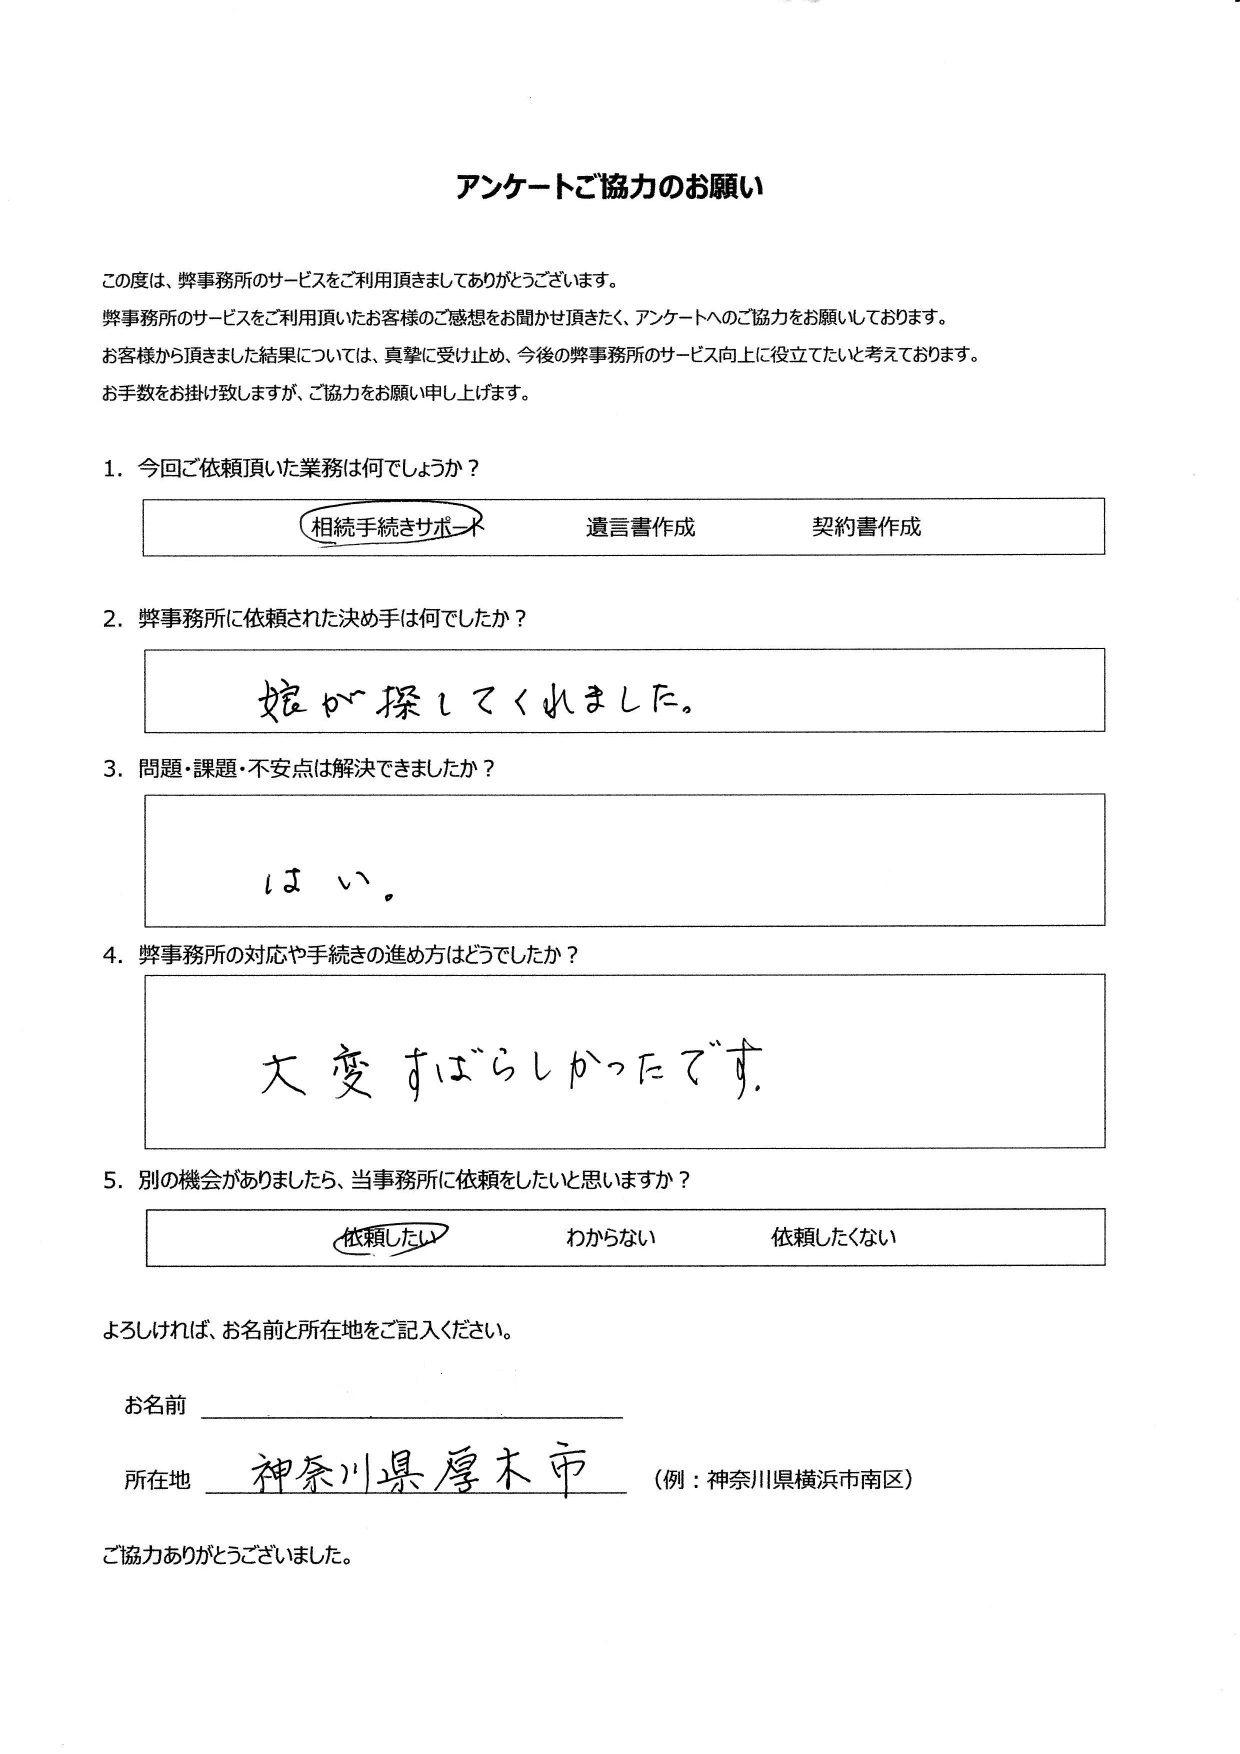 アンケートご協力のお願い
この度は、弊事務所のサービスをご利用頂きましてありがとうございます。
弊事務所のサービスをご利用頂いたお客様のご感想をお聞かせ頂きたく、アンケートへのご協力をお願いしております。
お客様から頂きました結果については、真摯に受け止め、今後の弊事務所のサービス向上に役立てたいと考えております。
お手数をお掛け致しますが、ご協力をお願い申し上げます。
1. 今回ご依頼頂いた業務は何でしょうか？
相続手続きサポート 遺言書作成 契約書作成
2. 弊事務所に依頼された決め手は何でしたか？
娘が探してくれました。
3. 問題・課題・不安点は解決できましたか？
はい。
4. 弊事務所の対応や手続きの進め方はどうでしたか？
大変すばらしかったです.
5. 別の機会がありましたら、当事務所に依頼をしたいと思いますか？
依頼したい わからない 依頼したくない
よろしければ、お名前と所在地をご記入ください。
お名前
所在地 神奈川県厚木市 （例：神奈川県横浜市南区）
ご協力ありがとうございました。